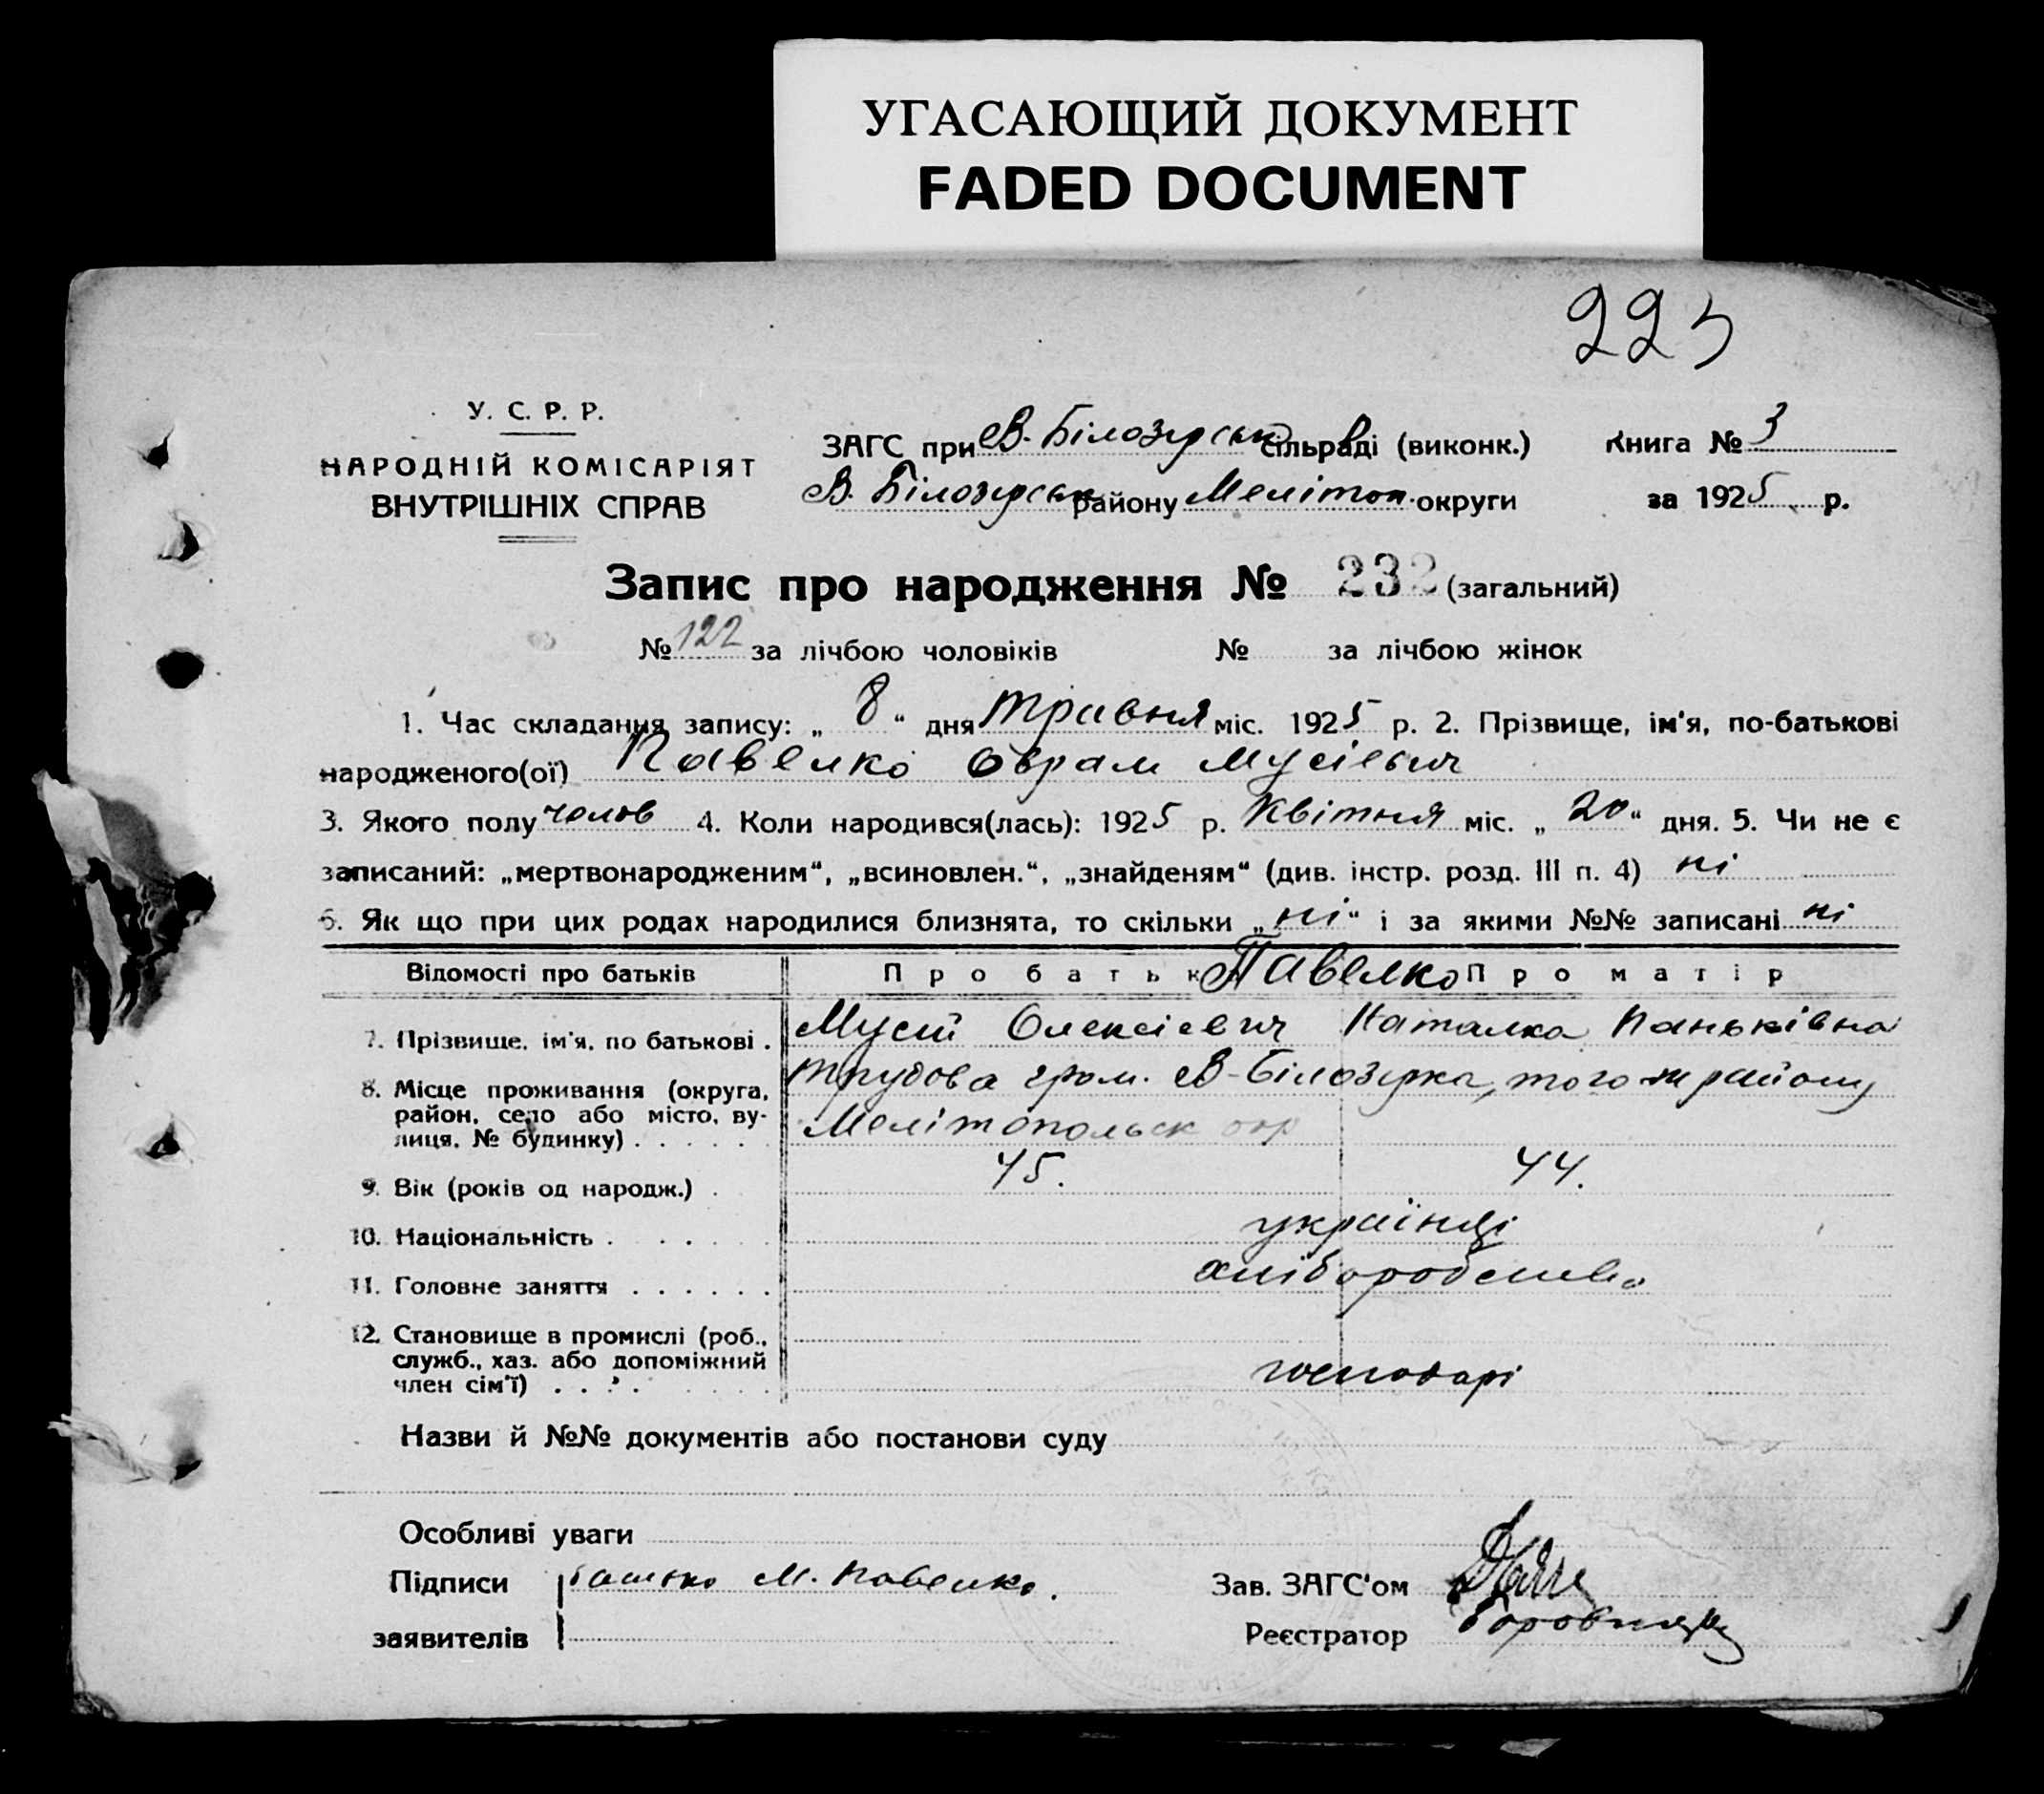 УГАСАЮЩИЙ ДОКУМЕНТ
FADED DOCUMENT
225
У. С. Р. Р.
НАРОДНІЙ КОМІСАРІЯТ
ВНУТРІШНІХ СПРАВ
ЗАГС при В. Білозерськ сільраді (виконк.) Книга № 3
В. Білозерськ району Мелітоп. округи за 1925 р.
Запис про народження № 232 (загальний)
№ 122 за лічбою чоловіків № за лічбою жінок
1. Час складання запису: „ 8 “ дня травня міс. 1925 р. 2. Прізвище, ім'я, по-батькові
народженого(ої) Павелко Оврам Мусієвич
3. Якого полу чолов 4. Коли народився(лась): 1925 р. Квітня міс. „ 20 “ дня. 5. Чи не є
записаний: „мертвонародженим“, „всиновлен.“, „знайденям“ (див. інстр. розд. III п. 4) ні
6. Як що при цих родах народилися близнята, то скільки „ ні “ і за якими №№ записані ні
Відомості про батьків Про батьк Павелко Про матір
7. Прізвище, ім'я, по батькові . Мусій Олексієвич Наталка Паньківна
8. Місце проживання (округа, Трудова гром. В-Білозерка, того ж району
район, село або місто, ву-
лиця, № будинку) . . . . . Мелітопольськ окр
9. Вік (років од народж.) . 45. 44.
10. Національність . . . . українці
11. Головне заняття . . . . . . хліборобство
12. Становище в промислі (роб.,
служб., хаз. або допоміжний
член сім'ї) . . . . господарі
Назви й №№ документів або постанови суду
Особливі уваги
Підписи батько М. Павелко. Зав. ЗАГС'ом
заявителів Реєстратор